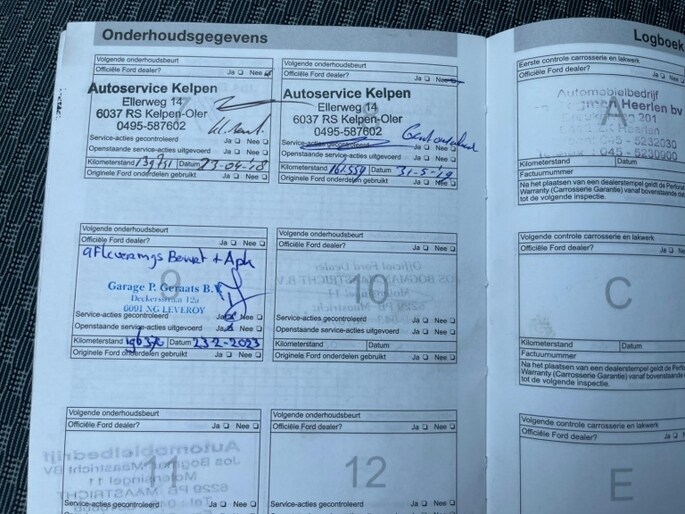 Onderhoudsgegevens
Volgende onderhoudsbeurt
Officiële Ford dealer? Ja Nee
Autoservice Kelpen
Ellerweg 14
6037 RS Kelpen-Oler
0495-587602
Service-acties gecontroleerd Ja Nee
Openstaande service-acties uitgevoerd Ja Nee
Kilometerstand Datum 23-04-18
Originele Ford onderdelen gebruikt Ja Nee
Volgende onderhoudsbeurt
Officiële Ford dealer? Ja Nee
Autoservice Kelpen
Ellerweg 14
6037 RS Kelpen-Oler
0495-587602
Service-acties gecontroleerd Ja Nee
Openstaande service-acties uitgevoerd Ja Nee
Kilometerstand 161.559 Datum 31-5-19
Originele Ford onderdelen gebruikt Ja Nee
Volgende onderhoudsbeurt
Officiële Ford dealer? Ja Nee
Afleverings Beurt + Apk
9
Garage P. Geraats B.V.
Deckerstraat 12a
6091 NG LEVEROY
Service-acties gecontroleerd Ja Nee
Openstaande service-acties uitgevoerd Ja Nee
Kilometerstand Datum 23-2-2023
Originele Ford onderdelen gebruikt Ja Nee
Volgende onderhoudsbeurt
Officiële Ford dealer? Ja Nee
10
Service-acties gecontroleerd Ja Nee
Openstaande service-acties uitgevoerd Ja Nee
Kilometerstand Datum
Originele Ford onderdelen gebruikt Ja Nee
Volgende onderhoudsbeurt
Officiële Ford dealer? Ja Nee
11
Service-acties gecontroleerd Ja Nee
Volgende onderhoudsbeurt
Officiële Ford dealer? Ja Nee
12
Service-acties gecontroleerd Ja Nee
Logboek
Eerste controle carrosserie en lakwerk
Officiële Ford dealer?
Automobielbedrijf
Heerlen bv
201
Heerlen
045 - 5232030
A
Kilometerstand Datum
Factuurnummer
Na het plaatsen van een dealerstempel geldt de
Warranty (Carrosserie Garantie) vanaf bovenstaande
tot de volgende inspectie.
Volgende controle carrosserie en lakwerk
Officiële Ford dealer?
C
Kilometerstand Datum
Factuurnummer
Na het plaatsen van een dealerstempel geldt de
Warranty (Carrosserie Garantie) vanaf bovenstaande
tot de volgende inspectie.
Volgende controle carrosserie en lakwerk
Officiële Ford dealer?
E